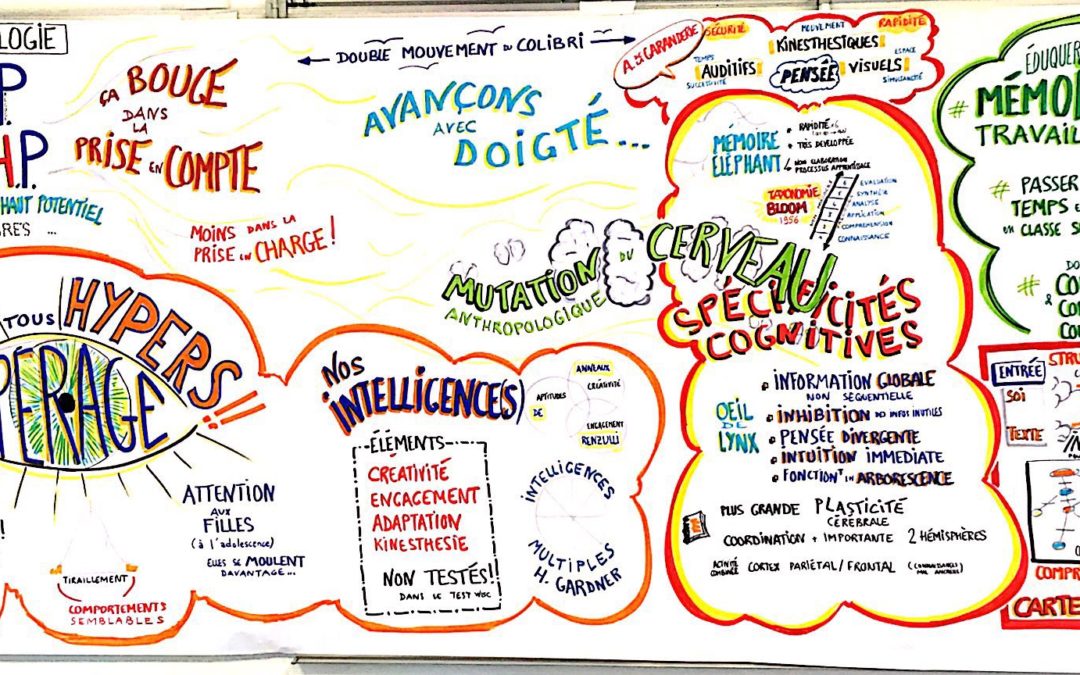 LOGIE
P.
H.P.
HAUT POTENTIEL
BRES ...
ÇA BOUGE
DANS
LA
PRISE EN COMPTE
MOINS DANS LA
PRISE EN CHARGE!
DOUBLE MOUVEMENT DU COLIBRI
AVANÇONS
AVEC
DOIGTÉ...
MUTATION DU CERVEAU
ANTHROPOLOGIQUE
TOUS HYPERS
PERAGE
!!
TIRAILLEMENT
COMPORTEMENTS
SEMBLABLES
ATTENTION
AUX
FILLES
(à l'adolescence)
ELLES SE MOULENT
DAVANTAGE...
NOS
INTELLIGENCE(S)
ÉLÉMENTS
CRÉATIVITÉ
ENGAGEMENT
ADAPTATION
KINESTHESIE
NON TESTÉS!!
DANS LE TEST WISC
ANNEAUX
CRÉATIVITÉ
APTITUDES
DE
ENGAGEMENT
RENZULLI
INTELLIGENCES
MULTIPLES
H. GARDNER
A. DE LA GARANDERIE
SÉCURITÉ
MOUVEMENT
RAPIDITÉ
KINESTHESIQUES
TEMPS
AUDITIFS
SUCCESSIVITÉ
PENSÉE
ESPACE
VISUELS
SIMULTANÉITÉ
MÉMOIRE
ÉLÉPHANT
+ RAPIDITÉ
+ TRÈS DÉVELOPPÉE
NON ELABORATION
PROCESSUS APPRENTISSAGE
TAXONOMIE
BLOOM
1956
EVALUATION
SYNTHÈSE
ANALYSE
APPLICATION
COMPREHENSION
CONNAISSANCE
SPÉCIFICITÉS
COGNITIVES
OEIL
DE
LYNX
INFORMATION GLOBALE
NON SÉQUENTIELLE
INHIBITION DES INFOS INUTILES
PENSÉE DIVERGENTE
INTUITION IMMEDIATE
FONCTIONT EN ARBORESCENCE
PLUS GRANDE PLASTICITÉ
CÉRÉBRALE
COORDINATION + IMPORTANTE 2 HÉMISPHÈRES
ACTIVITÉ
COMBINÉE CORTEX PARIÉTAL/FRONTAL (CONNAISSANCES
MAL ANCRÉES)
ÉDUQUER
# MÉMOI
TRAVAIL
# PASSER
TEMPS
EN CLASSE
# CO
&
CO
CO
ENTRÉE
STRU
SOI
TEXTE
COMPR
CARTE